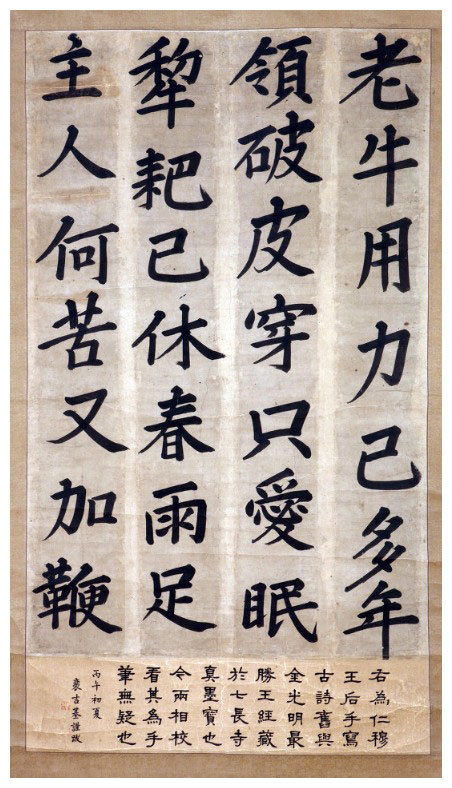 老牛用力已多年
領破皮穿只愛眠
犂耙已休春雨足
主人何苦又加鞭
右為仁穆
王后手寫
古詩舊與
金光明最
勝王經藏
於七長寺
真墨寶也
今兩相校
看其為手
筆無疑也
丙午初夏
裵吉基謹攷